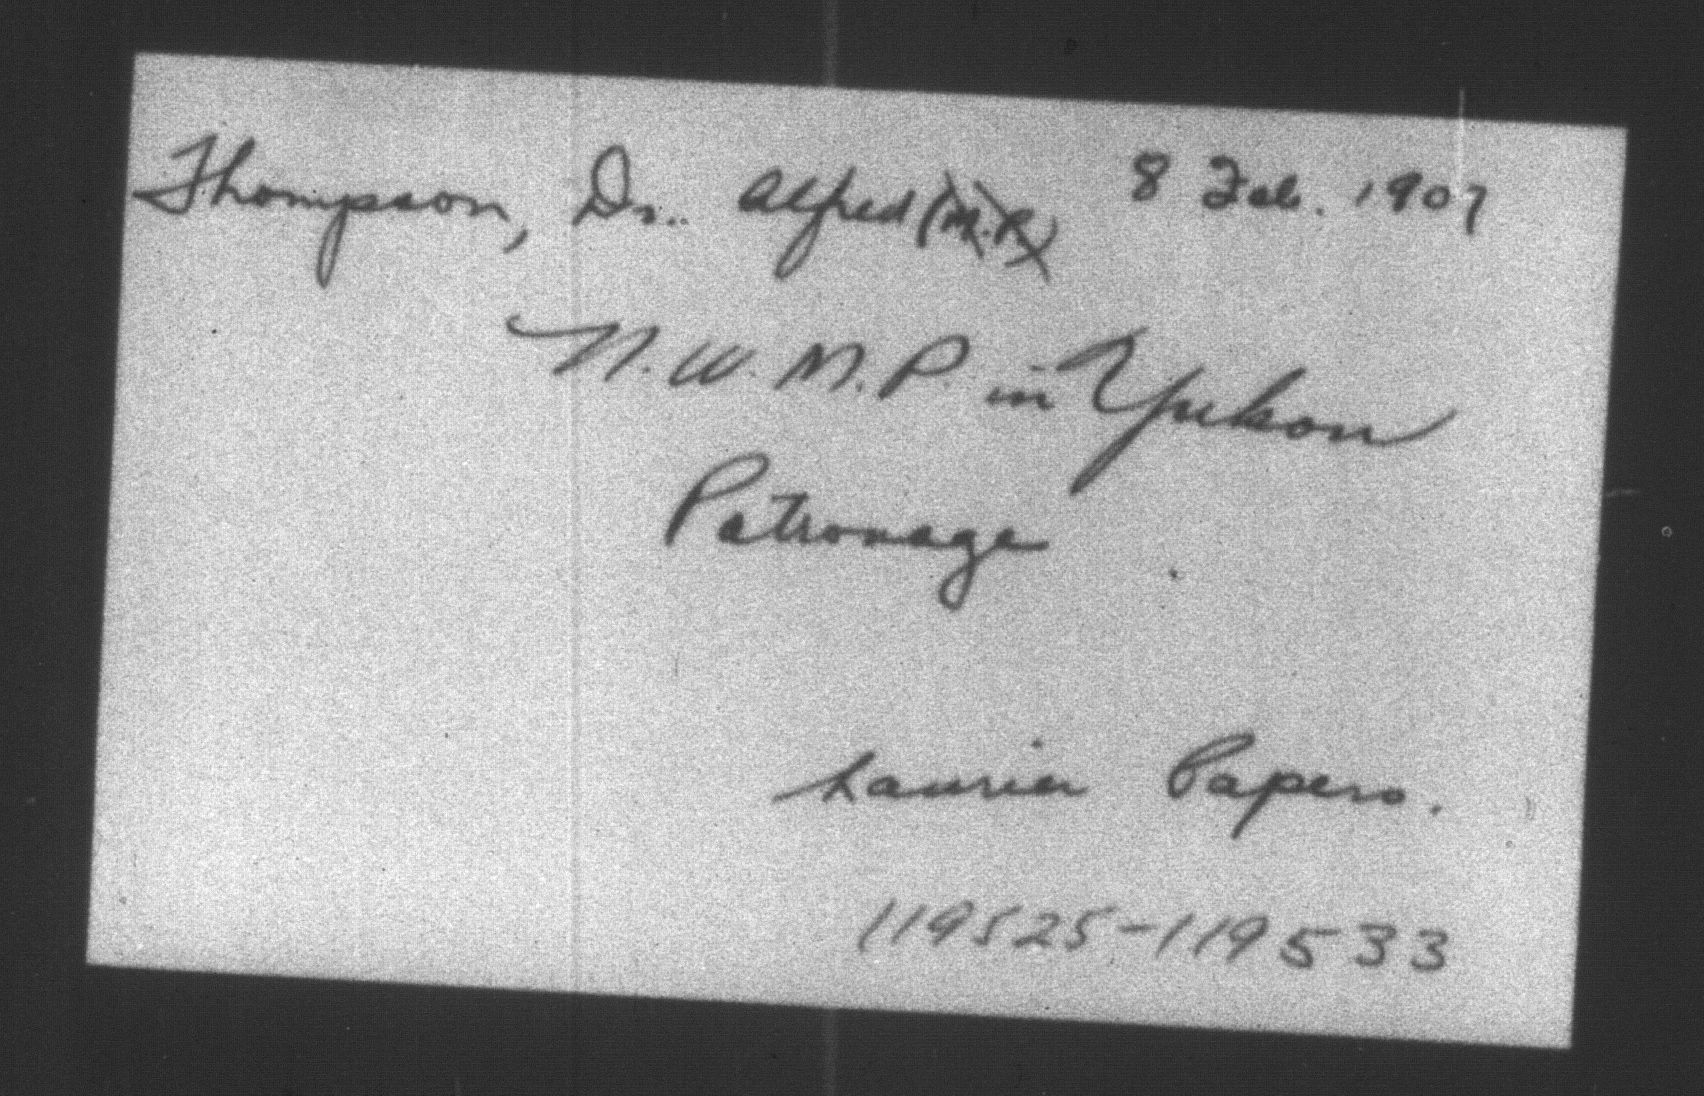 Thompson, Dr. Alfred (M.P.) 8 Feb. 1907
N.W.M.P. in Yukon
Patronage
Laurier Papers.
119525-119533